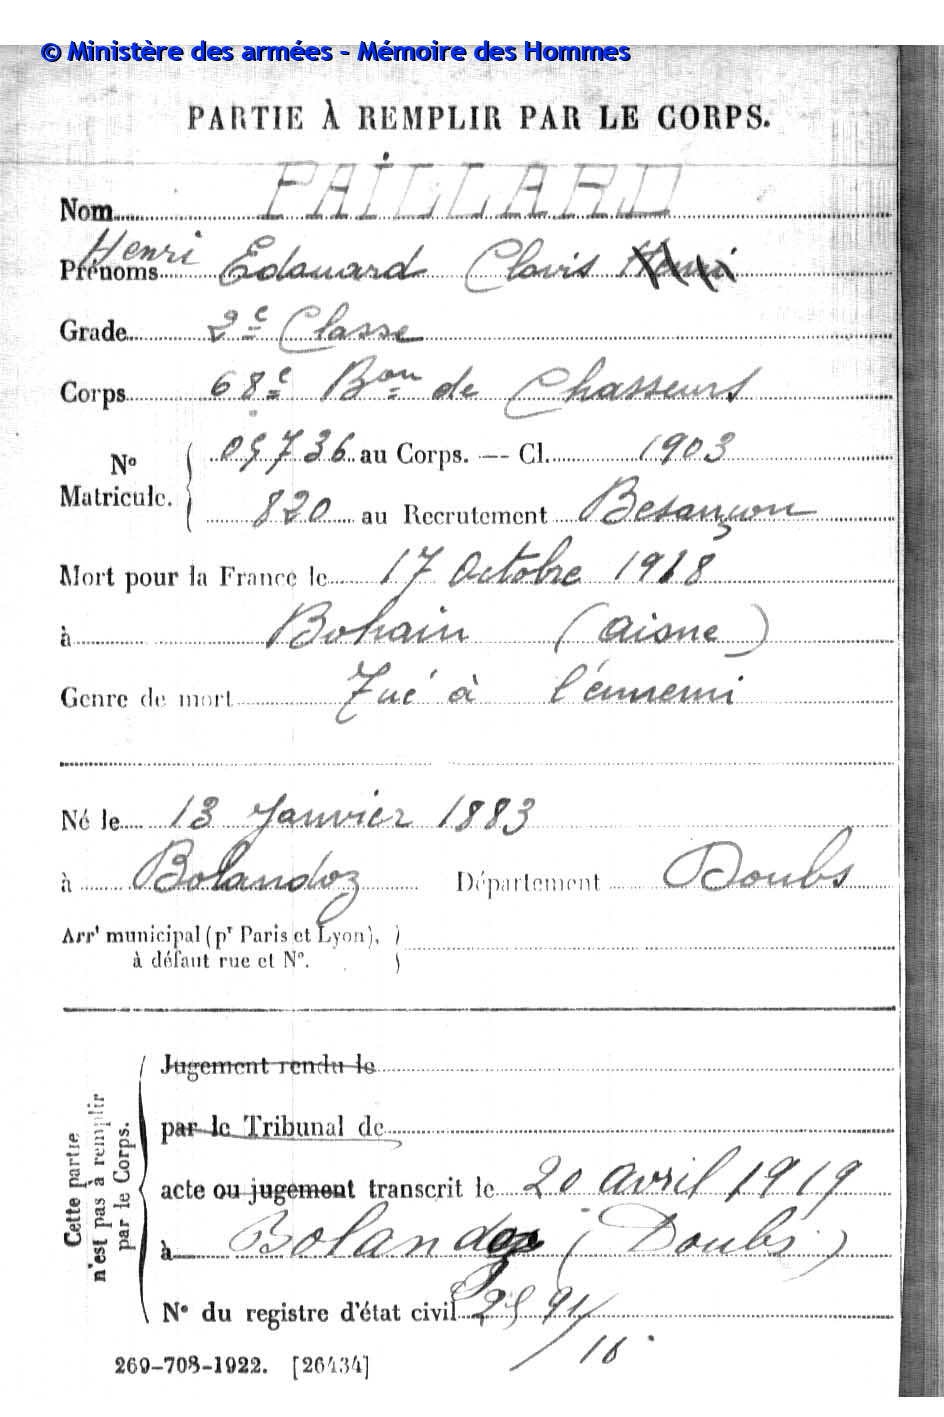 © Ministère des armées - Mémoire des Hommes
PARTIE À REMPLIR PAR LE CORPS.
Nom PAILLARD
Prénoms Henri Edouard Clovis Henri
Grade 2e Classe
Corps 68e Bon de Chasseurs
No Matricule. 05736 au Corps. — Cl. 1903
820 au Recrutement Besançon
Mort pour la France le 17 Octobre 1918
à Bohain (Aisne)
Genre de mort Tué à l'ennemi
Né le 13 Janvier 1883
à Bolandoz Département Doubs
Arrt municipal (pr Paris et Lyon),
à défaut rue et N°.
Cette partie
n'est pas à remplir
par le Corps.
Jugement rendu le
par le Tribunal de
acte ou jugement transcrit le 20 avril 1919
à Bolandoz (Doubs)
N° du registre d'état civil
269-708-1922. [26434]